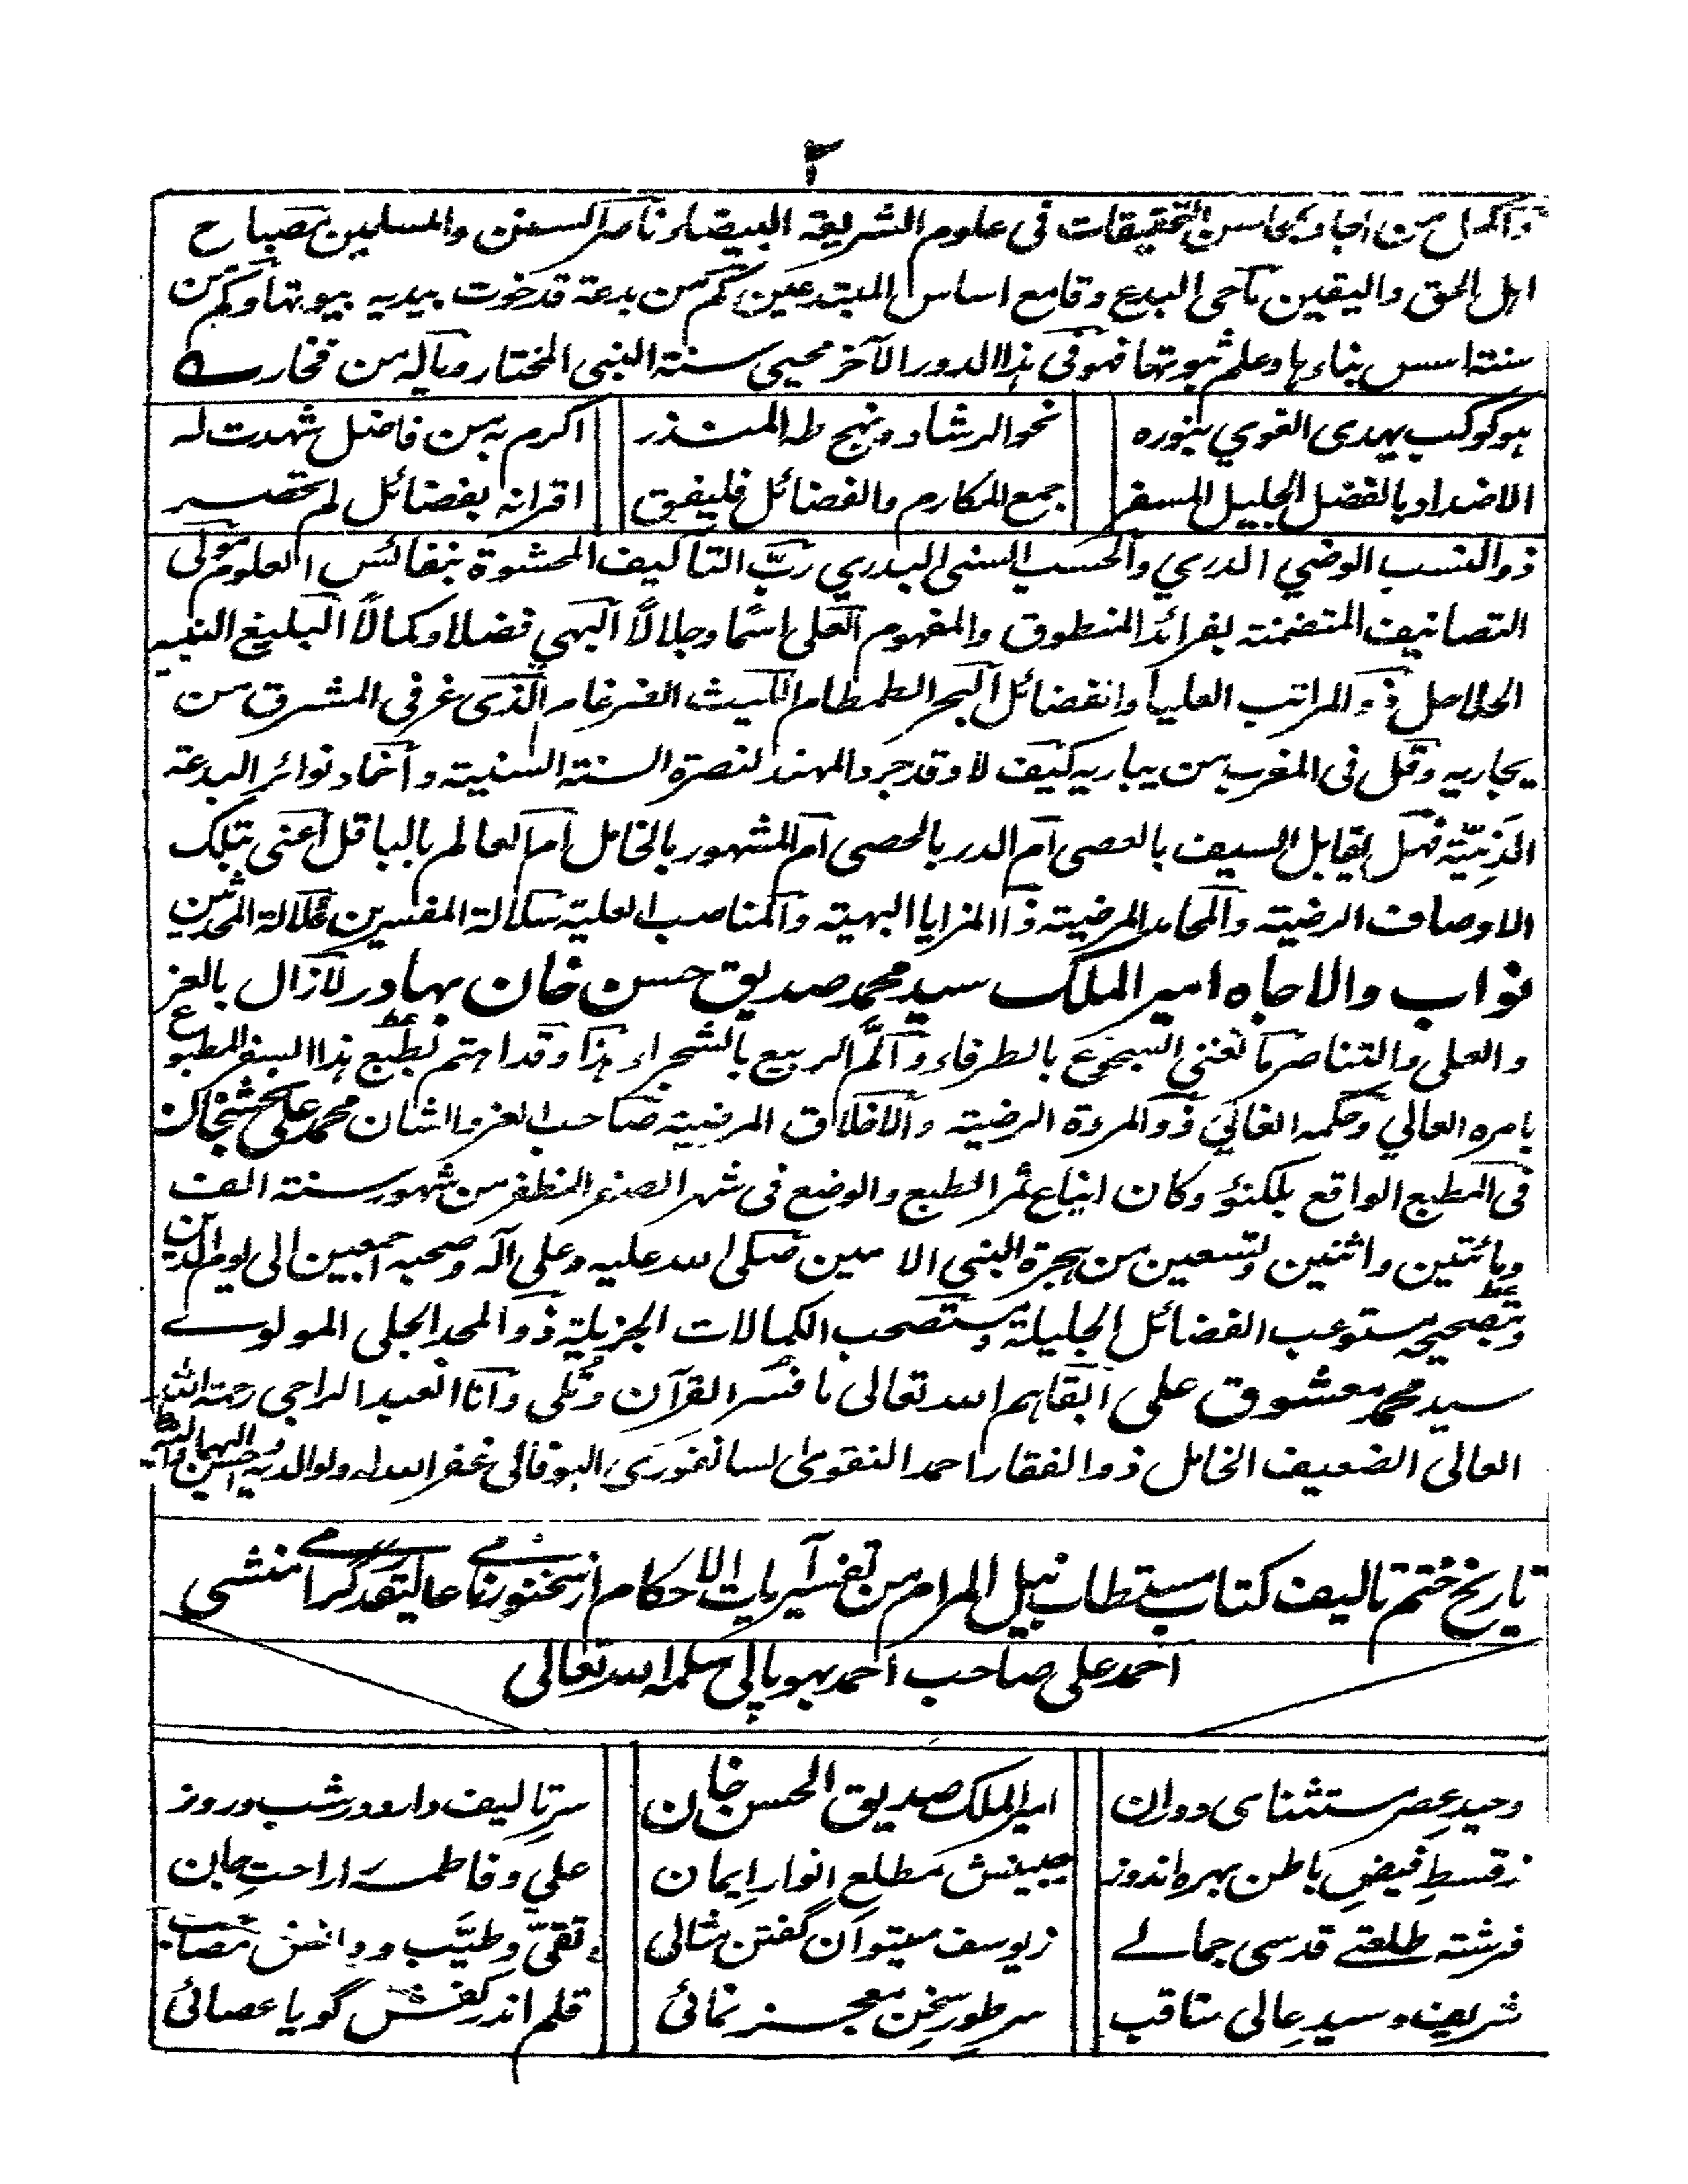 ٢
واكمل من اجاد بمحاسن التحقيقات فى علوم الشريعة البيضاء ناصر السنن والمسلمين مصباح
اهل الحق واليقين ماحى البدع وقامع اساس المبتدعين كم من بدعة قد خوت بيديه بيوتها وكم من
سنة اسس بناءها وعلم ثبوتها فهو فى هذا الدور الآخر محيي سنة النبى المختار وماله من فخار
هو كوكب يهدى الغوي بنوره نحو الرشاد ونهج طه المنذر اكرم به من فاضل شهدت له
الاضداد بالفضل الجليل المسفر جمع المكارم والفضائل فليفق اقرانه بفضائل لم تحصر
ذو النسب الوضي الدري والحسب السنى البدري ربّ التآليف المحشوة بنفائس العلوم مولى
التصانيف المتضمنة لفرائد المنطوق والمفهوم العلى اسمًا وجلالاً البهي فضلا وكمالاً البليغ النبيه
الحلاحل ذو المراتب العليا والفضائل البحر الطمطام الليث الضرغام الذى عز فى المشرق من
يجاريه وقل فى المغرب من يباريه كيف لا وقد جرد المهند لنصرة السنة السنية واخماد نوائر البدعة
الدنيّة فهل يقابل السيف بالعصى ام الدر بالحصى ام المشهور بالخامل ام العالم بالباقل اعنى بتلك
الاوصاف الرضية والمحامد المرضية ذا المزايا البهية والمناصب العلية سلالة المفسرين علالة المحدثين
نواب والاجاه امير الملك سيد محمد صديق حسن خان بهادر لا زال بالعز
والعلى والتناصر ما تغنى السجوع بالطرفاء وألمّ الربيع بالشجراء هذا وقد اهتم بطبع هذا السفر المطبوع
بامره العالي وحكمه الغالي ذو المروة الرضية والاخلاق المرضية صاحب العز والشان محمد علي بخش خان
فى المطبع الواقع بلكنؤ وكان ايناع ثمر الطبع والوضع فى شهر الصفر المظفر من شهور سنة الف
ومائتين واثنتين وتسعين من هجرة النبى الامين صلى الله عليه وعلى آله وصحبه اجمعين الى يوم الدين
وبتصحيحه مستوعب الفضائل الجليلة ومستصحب الكمالات الجزيلة ذو المجد الجلى المولوے
سيد محمد معشوق على ابقاهم الله تعالى ما فسر القرآن وتلى وانا العبد الراجي رحمة الله
العالى الضعيف الخامل ذو الفقار احمد النقوى السانفورى البوفالى غفر الله له ولوالديه واحسن اليهما واليه
تاريخ ختم تاليف كتاب مستطاب نيل المرام من تفسير آيات الاحكام از سخنور نامے عاليقدر گرامے منشى
احمد على صاحب احمد بهوپالى سلمه الله تعالى
وحيد عصر مستثناى دوران امير الملك صديق الحسن خان سر تاليف دارد در شب و روز
ز قسط فيض باطن بهره اندوز جبينش مطلع انوار ايمان على و فاطمه را راحت جان
فرشته طلعتے قدسى جمالے ز يوسف ميتوان گفتن مثالى تقىّ و طيّب
شريف و سيد عالى مناقب سر طور سخن معجز نمائى قلم اندر كفش گويا عصائى